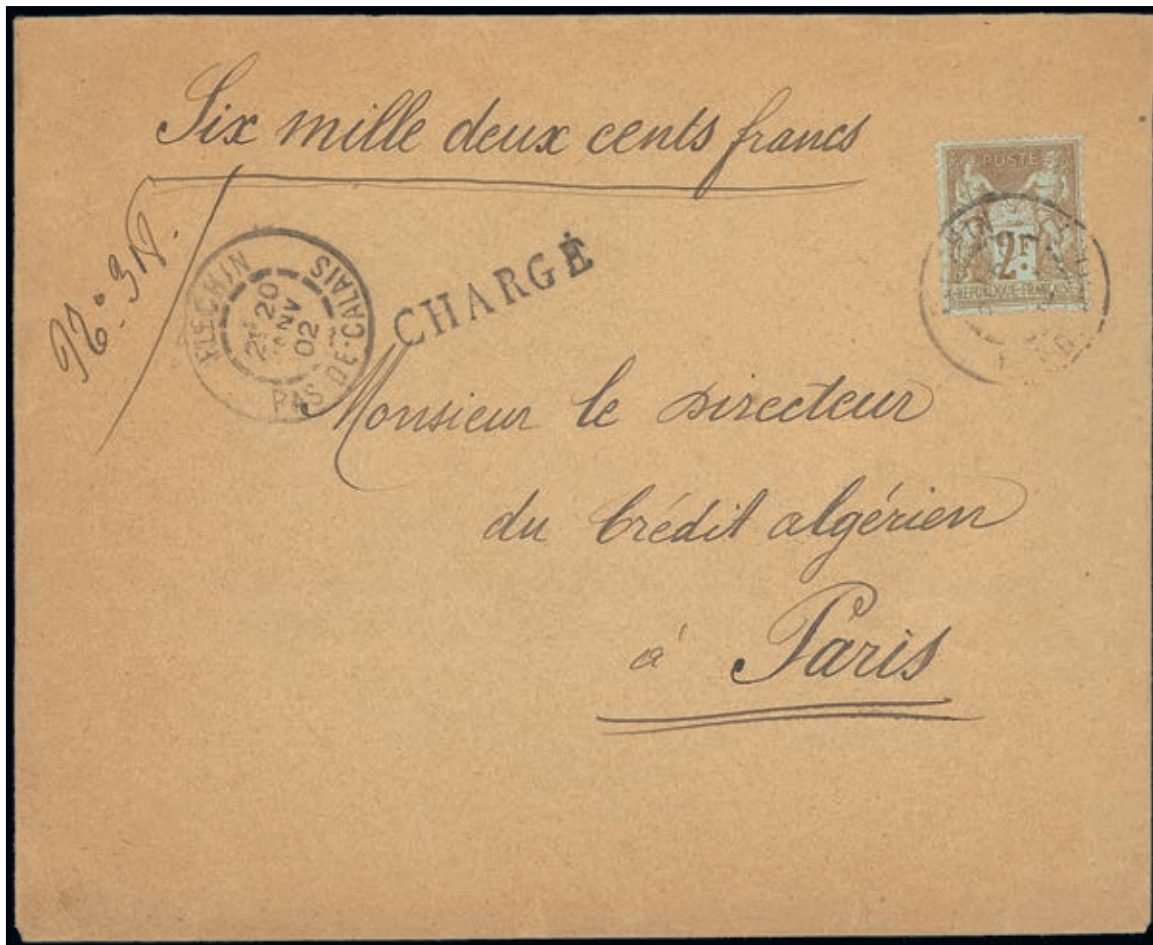 Six mille deux cents francs
POSTE
2F
REPUBLIQUE FRANCAISE
FLÉCHIN
2E 20
JANV
02
PAS-DE-CALAIS
CHARGÉ
Monsieur le Directeur
du Crédit algérien
à Paris